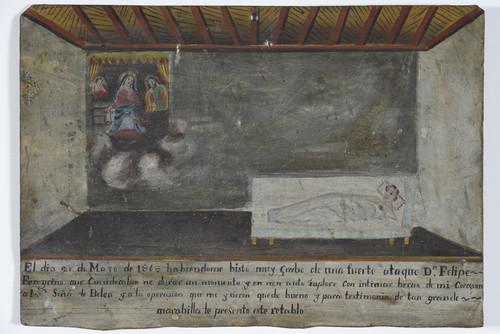 El dia 20 de Mayo de 1862 habiendome bisto muy Grabe de una fuerte ataque Dn. Felipe
que Considerables no duraré un momento y en mi imploré con intimas beras de mi Corason
a Sra. Señra. de Belen y a la operasion que me y sieron quede bueno y para testimonio de tan grande
marabilla le presento este retablo